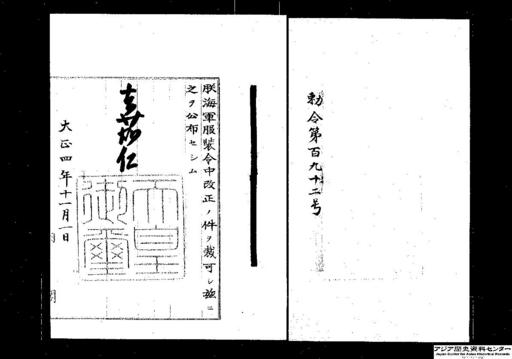 勅令第百九十二号
朕海軍服装令中改正ノ件ヲ裁可シ玆ニ
之ヲ公布セシム
嘉仁
天皇御璽
大正四年十一月一日
アジア歴史資料センター
Japan Center for Asian Historical Records